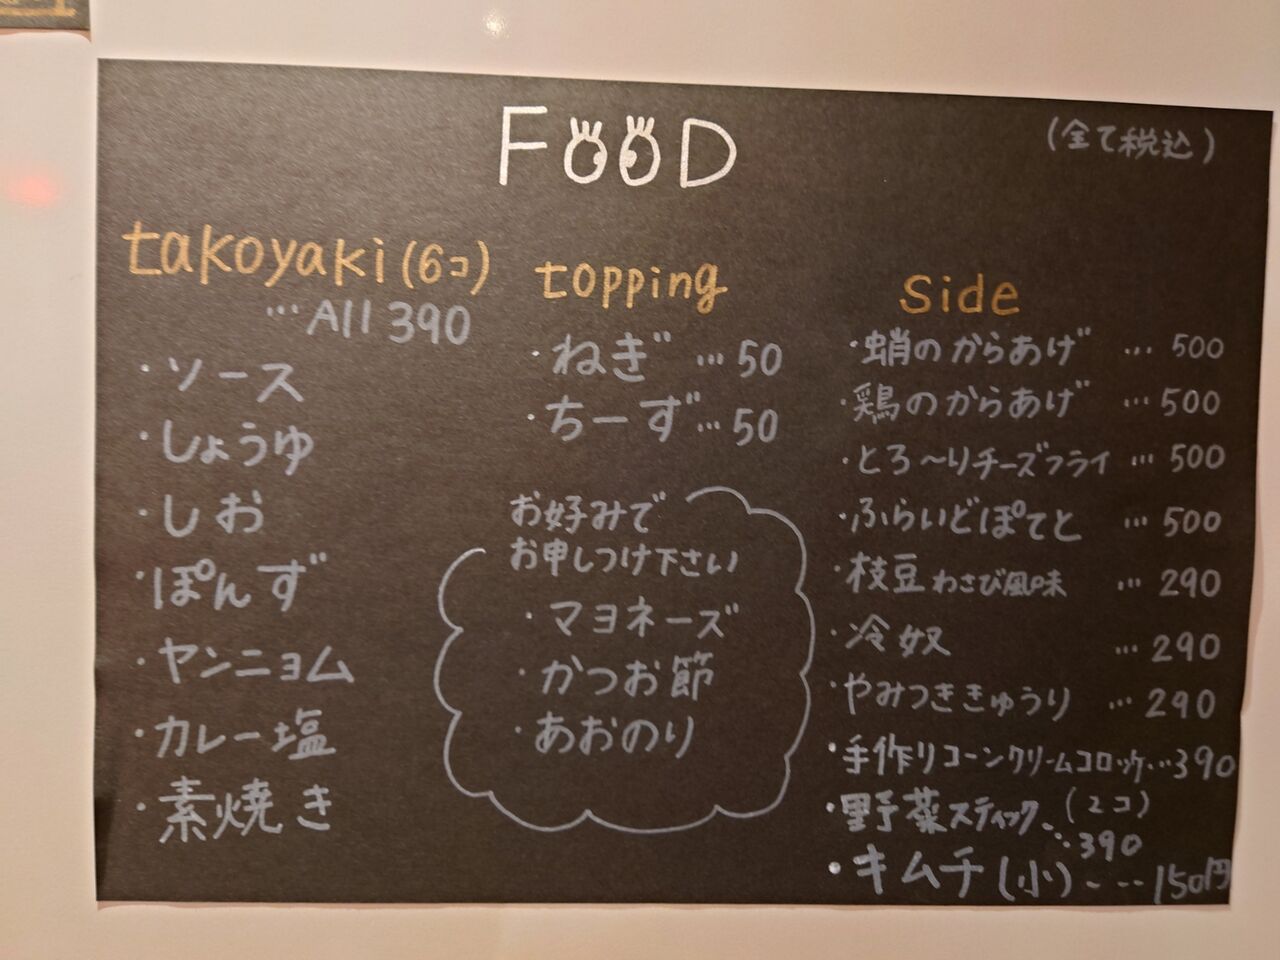 FOOD
(全て税込)
takoyaki (6コ)
…All 390
・ソース
・しょうゆ
・しお
・ぽんず
・ヤンニョム
・カレー塩
・素焼き
topping
・ねぎ …50
・ちーず…50
お好みで
お申しつけ下さい
・マヨネーズ
・かつお節
・あおのり
Side
・蛸のからあげ …500
・鶏のからあげ …500
・とろ〜りチーズフライ …500
・ふらいどぽてと …500
・枝豆わさび風味 …290
・冷奴 …290
・やみつききゅうり …290
・手作りコーンクリームコロッケ…390
・野菜スティック (2コ)
…390
・キムチ(小)-…150円